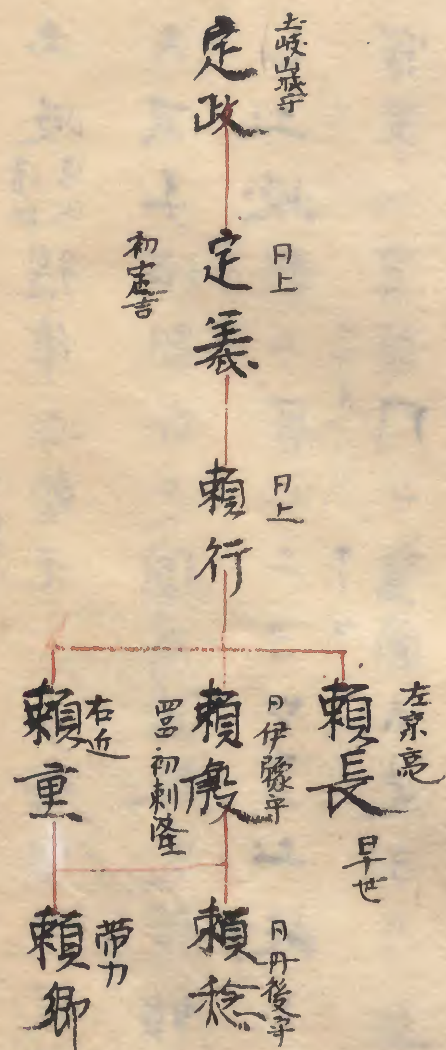 土岐山城守
定政
同上
定義
初定吉
同上
頼行
左京亮
頼長
早世
同伊豫守
頼殷
四品
初刺隆
右近
頼重
同丹後守
頼稔
帯刀
頼郷